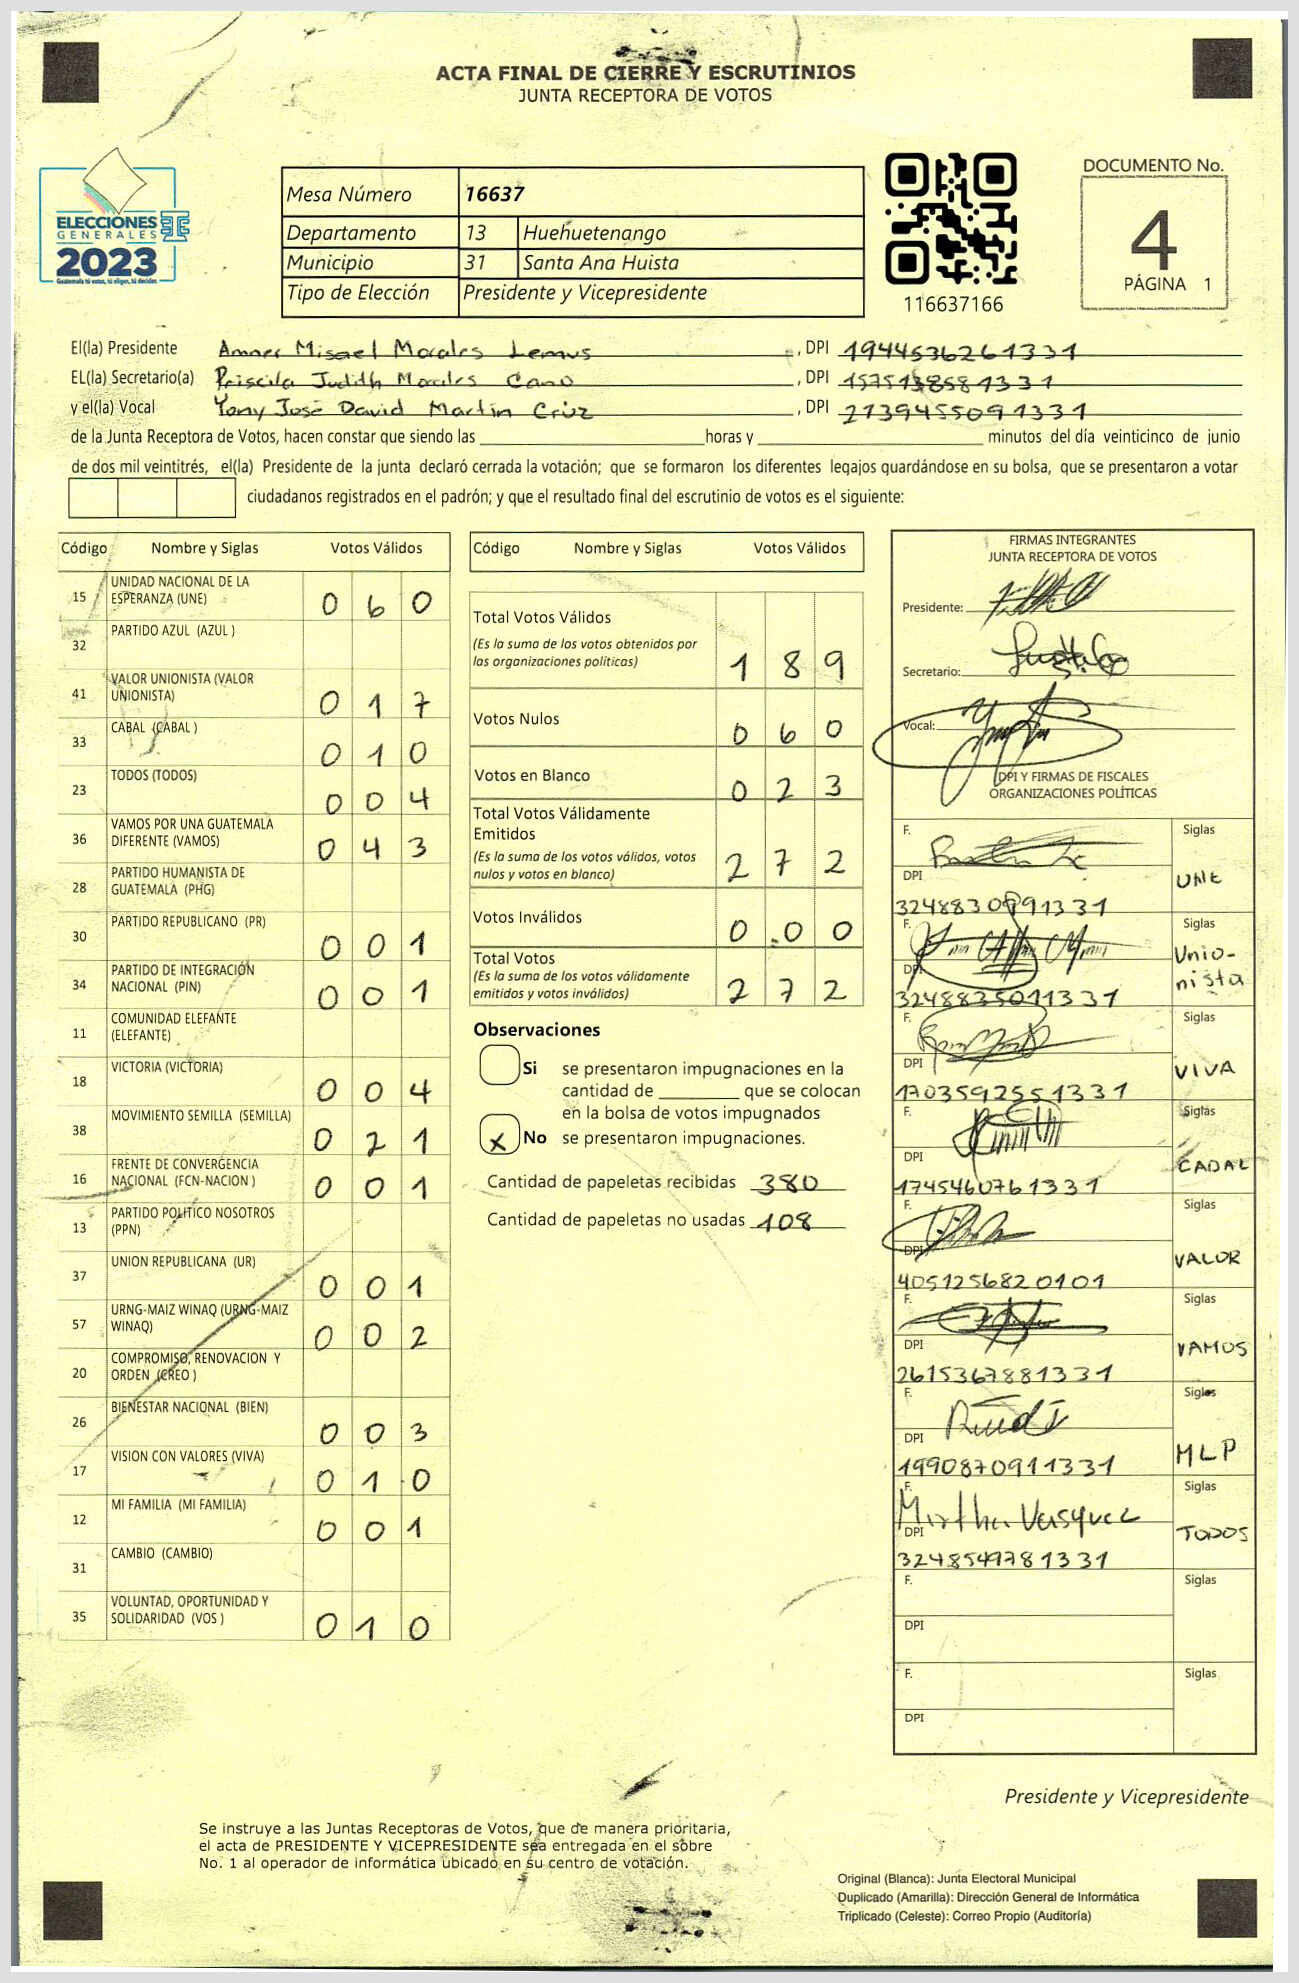 ACTA FINAL DE CIERRE Y ESCRUTINIOS
JUNTA RECEPTORA DE VOTOS
ELECCIONES
GENERALES
2023
Guatemala tú votas, tú eliges, tú decides
Mesa Número 16637
Departamento 13 Huehuetenango
Municipio 31 Santa Ana Huista
Tipo de Elección Presidente y Vicepresidente
116637166
DOCUMENTO No.
4
PÁGINA 1
El(la) Presidente Amner Misael Morales Lemus, DPI 1944536261331
EL(la) Secretario(a) Priscila Judith Morales Cano, DPI 1575138581331
y el(la) Vocal Yony José David Martin Cruz, DPI 2739455091331
de la Junta Receptora de Votos, hacen constar que siendo las ____ horas y ____ minutos del día veinticinco de junio
de dos mil veintitrés, el(la) Presidente de la junta declaró cerrada la votación; que se formaron los diferentes legajos guardándose en su bolsa, que se presentaron a votar
ciudadanos registrados en el padrón; y que el resultado final del escrutinio de votos es el siguiente:
Código Nombre y Siglas Votos Válidos
15 UNIDAD NACIONAL DE LA
ESPERANZA (UNE) 0 6 0
32 PARTIDO AZUL (AZUL )
41 VALOR UNIONISTA (VALOR
UNIONISTA) 0 1 7
33 CABAL (CABAL ) 0 1 0
23 TODOS (TODOS) 0 0 4
36 VAMOS POR UNA GUATEMALA
DIFERENTE (VAMOS) 0 4 3
28 PARTIDO HUMANISTA DE
GUATEMALA (PHG)
30 PARTIDO REPUBLICANO (PR) 0 0 1
34 PARTIDO DE INTEGRACIÓN
NACIONAL (PIN) 0 0 1
11 COMUNIDAD ELEFANTE
(ELEFANTE)
18 VICTORIA (VICTORIA) 0 0 4
38 MOVIMIENTO SEMILLA (SEMILLA) 0 2 1
16 FRENTE DE CONVERGENCIA
NACIONAL (FCN-NACION ) 0 0 1
13 PARTIDO POLITICO NOSOTROS
(PPN)
37 UNION REPUBLICANA (UR) 0 0 1
57 URNG-MAIZ WINAQ (URNG-MAIZ
WINAQ) 0 0 2
20 COMPROMISO, RENOVACION Y
ORDEN (CREO )
26 BIENESTAR NACIONAL (BIEN) 0 0 3
17 VISION CON VALORES (VIVA) 0 1 0
12 MI FAMILIA (MI FAMILIA) 0 0 1
31 CAMBIO (CAMBIO)
35 VOLUNTAD, OPORTUNIDAD Y
SOLIDARIDAD (VOS ) 0 1 0
Código Nombre y Siglas Votos Válidos
Total Votos Válidos
(Es la suma de los votos obtenidos por
las organizaciones políticas) 1 8 9
Votos Nulos 0 6 0
Votos en Blanco 0 2 3
Total Votos Válidamente
Emitidos
(Es la suma de los votos válidos, votos
nulos y votos en blanco) 2 7 2
Votos Inválidos 0 0 0
Total Votos
(Es la suma de los votos válidamente
emitidos y votos inválidos) 2 7 2
Observaciones
Si se presentaron impugnaciones en la
cantidad de ____ que se colocan
en la bolsa de votos impugnados
X No se presentaron impugnaciones.
Cantidad de papeletas recibidas 380
Cantidad de papeletas no usadas 108
FIRMAS INTEGRANTES
JUNTA RECEPTORA DE VOTOS
Presidente:
Secretario:
Vocal:
DPI Y FIRMAS DE FISCALES
ORGANIZACIONES POLÍTICAS
F. Siglas
DPI UNE
3248830891331
F. Siglas
DPI Unio-
nista
3248835011331
F. Siglas
DPI VIVA
1703592551331
F. Siglas
DPI CADAL
1745460761331
F. Siglas
DPI VALOR
4051256820101
F. Siglas
DPI VAMOS
2615367881331
F. Siglas
DPI MLP
1990870911331
F. Mirtha Vasquez Siglas
DPI TODOS
3248549781331
F. Siglas
DPI
F. Siglas
DPI
Presidente y Vicepresidente
Se instruye a las Juntas Receptoras de Votos, que de manera prioritaria,
el acta de PRESIDENTE Y VICEPRESIDENTE sea entregada en el sobre
No. 1 al operador de informática ubicado en su centro de votación.
Original (Blanca): Junta Electoral Municipal
Duplicado (Amarilla): Dirección General de Informática
Triplicado (Celeste): Correo Propio (Auditoría)